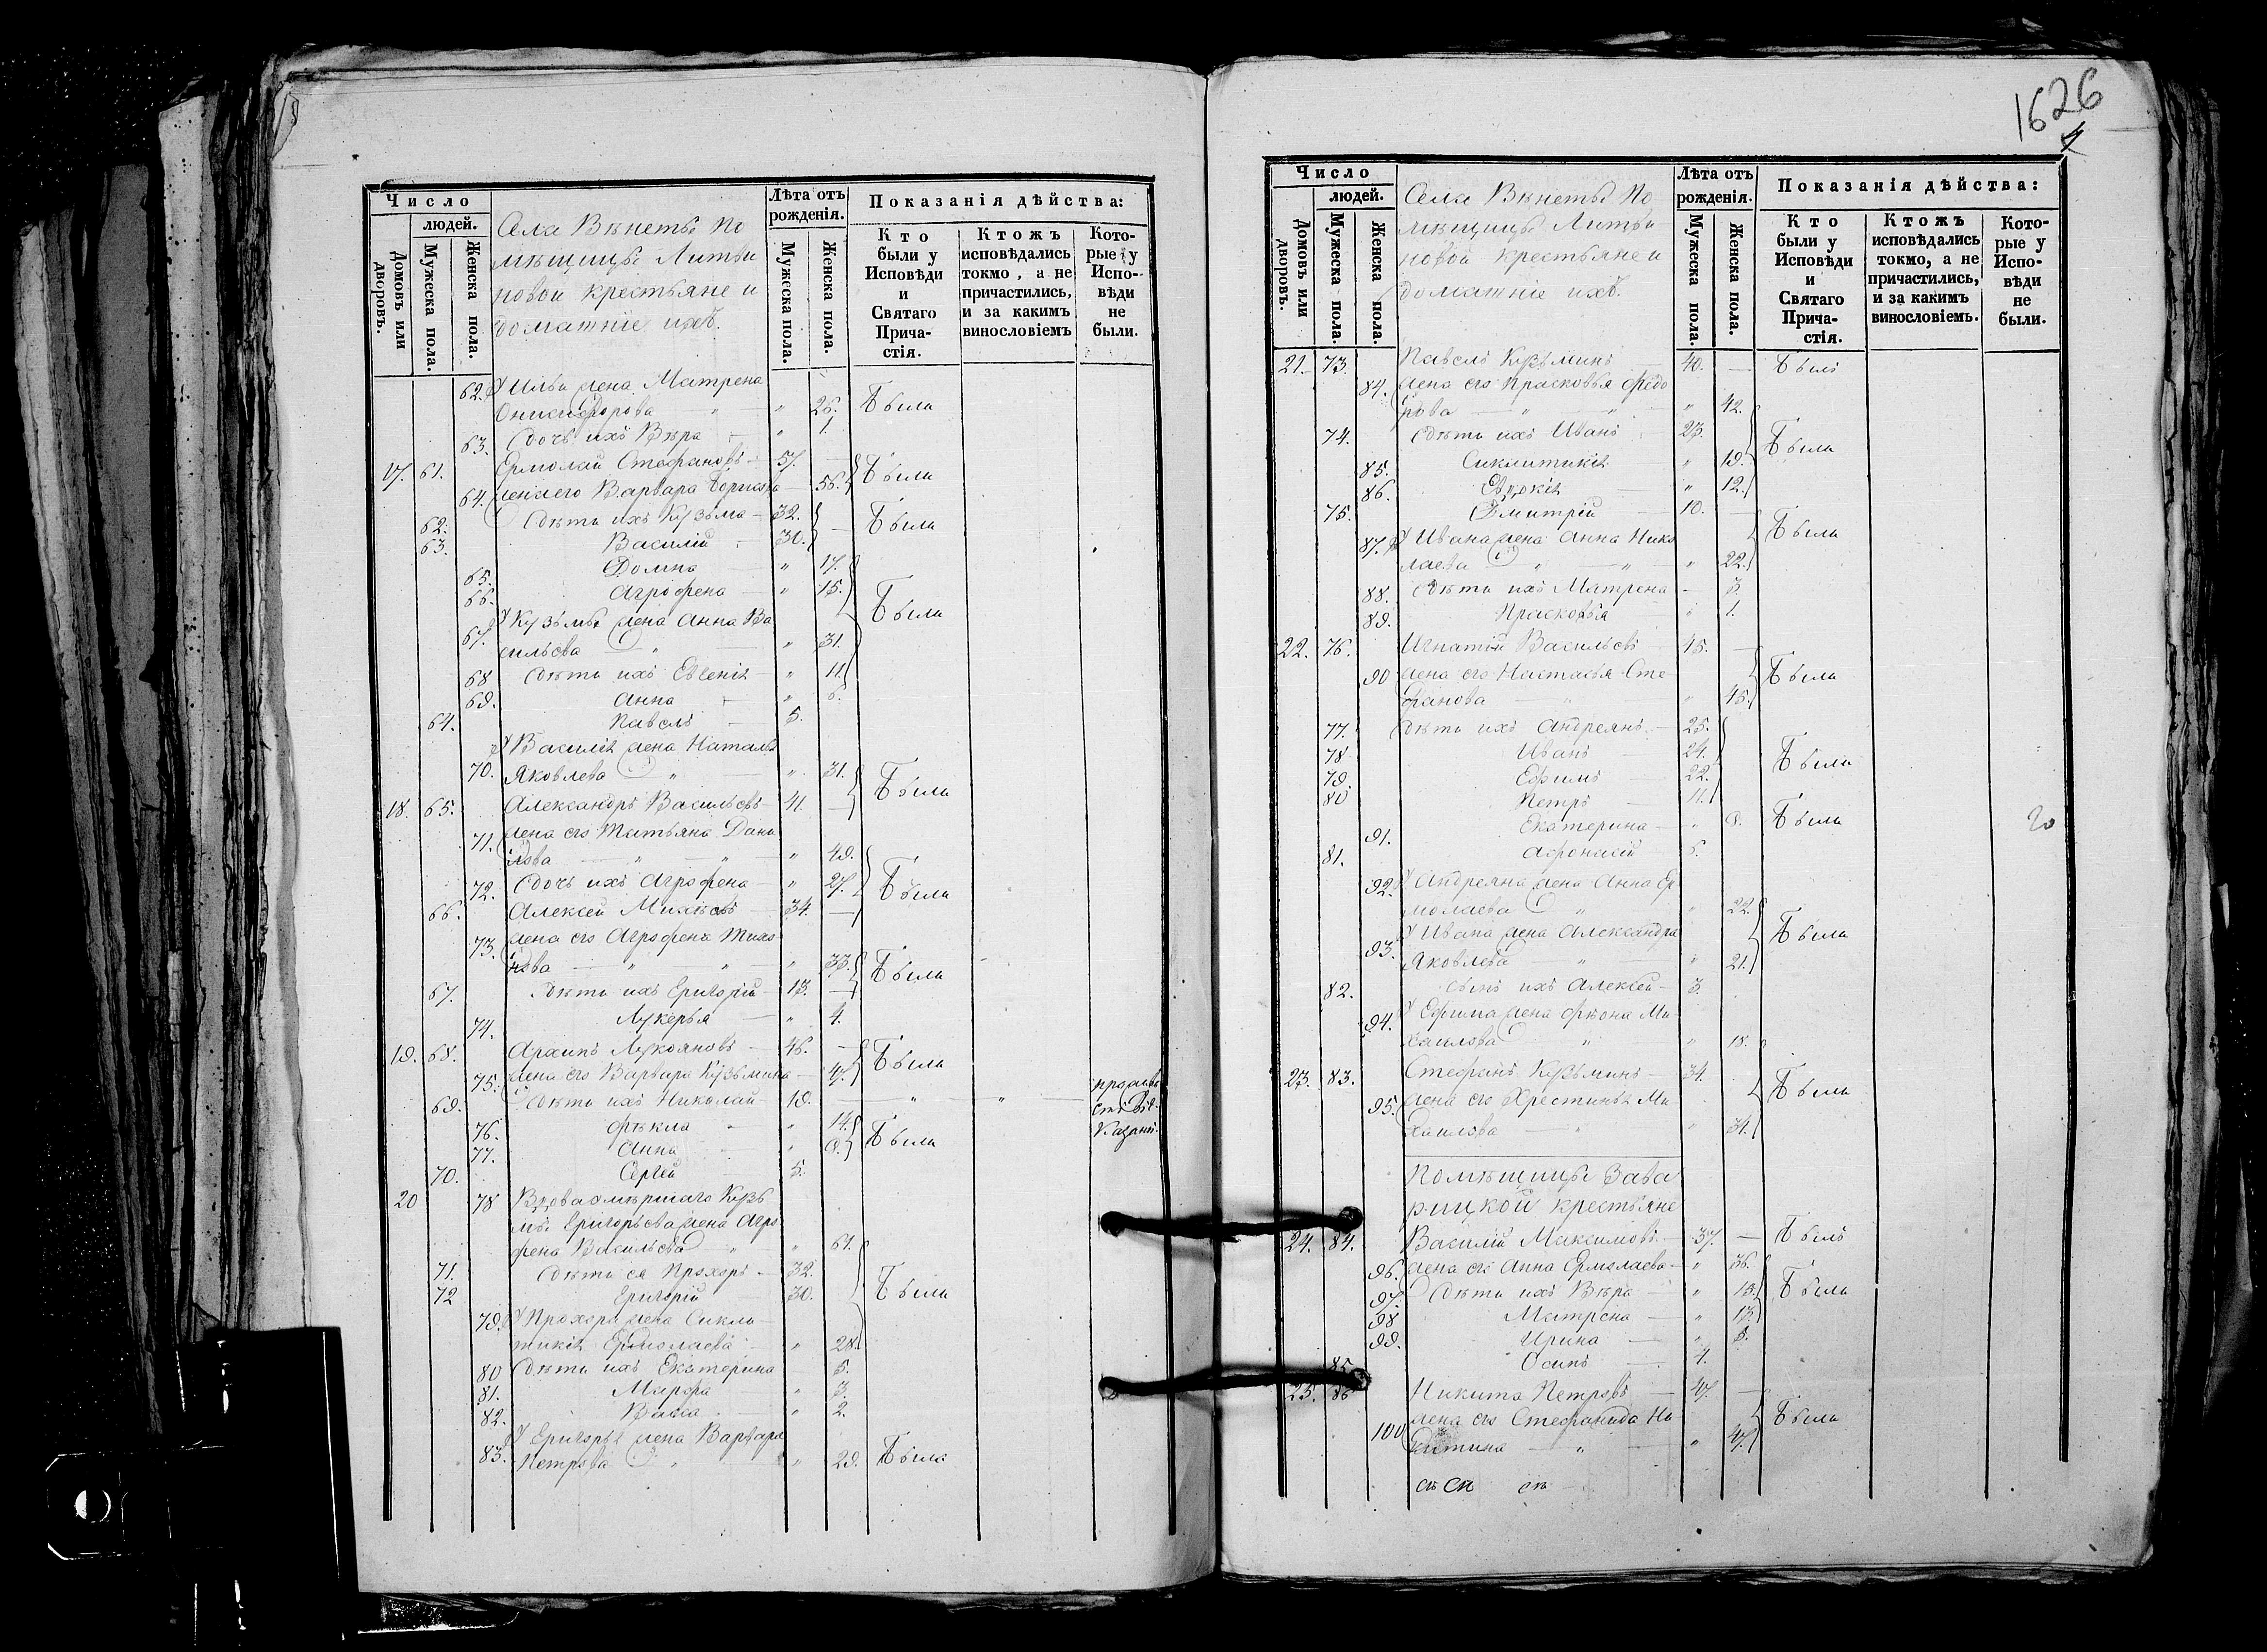 Число
людей.
Домовъ или дворовъ.
Мужеска пола.
Женска пола.
Села Вѣнеты По
мѣщицы Литви
новой крестьяне и
домашніе ихъ.
Лѣта отъ
рожденія.
Мужеска пола.
Женска пола.
Показанія дѣйства:
Кто
были у
Исповѣди
и
Святаго
Прича-
стія.
Ктожъ
исповѣдались
токмо, а не
причастились,
и за какимъ
винословіемъ
Кото-
рые у
Испо-
вѣди
не
были.
62. жена Матрена
Онисифорова " 26. Была
63. Дочь ихъ Вѣра " 1.
17. 61. Ермолай Стефановъ 57.
64. жена его Варвара 56. Были
62. Дѣти ихъ Кузьма 32.
63. Василій 30. Были
65. Домна " 17.
66. Агрофена " 15.
67. У Кузьмы жена Анна Ва
сильева " " 31. Были
68 Дѣти ихъ Евгенія " 11.
69. Анна " 6.
64. Павелъ 5.
У Василія жена Наталья
70. Яковлева " " 31.
18. 65. Александръ Васильевъ 41. — Были
71. жена его Татьяна Дани
лова " " " 49.
72. Дочь ихъ Агрофена " 27. Были
66. Алексей 34. —
73. жена его Агрофена Тихо
нова " " " 33.
67. Дѣти ихъ Григорій 13. — Были
74. Лукерья " 4.
19. 68. Архипъ Лукояновъ 46. —
75. жена его Варвара Кузьмина 47. Были
69. Дѣти ихъ Николай 19. — " "
76. Ѳекла " 14.
77. Анна " 8. Были
70. Сергій 5.
20 78 Вдова умершаго Кузь
мы Григорьева жена Агро
фена Васильева " " 61.
71. Дѣти ея Прохоръ 32.
72 Григорій 30. Были
79. У Прохора жена Сикли
тикія Ермолаева " 28.
80 Дѣти ихъ Екатерина 5.
81. Марфа " 3.
82. Васса " 2.
У Григорья жена Варвара
83. Петрова " " 29. Была
1626
Число
людей.
Домовъ или дворовъ.
Мужеска пола.
Женска пола.
Села Вѣнеты По
мѣщицы Литви
новой крестьяне и
домашніе ихъ.
Лѣта отъ
рожденія.
Мужеска пола.
Женска пола.
Показанія дѣйства:
Кто
были у
Исповѣди
и
Святаго
Прича-
стія.
Ктожъ
исповѣдались
токмо, а не
причастились,
и за какимъ
винословіемъ.
Кото-
рые у
Испо-
вѣди
не
были.
21. 73. Павелъ Кузьминъ 40. — Былъ
84. жена его Прасковья Федо
рова " " " 42.
74. Дѣти ихъ Иванъ 23.
85. Сиклитикія " 19. Были
86. Евдокія " 12.
75. Дмитрій 10. —
87. У Ивана жена Анна Нико
лаева " " " 22. Были
88. Дѣти ихъ Матрена 3.
89. Прасковья " 1.
22. 76. Игнатій Васильевъ 45. —
90 жена его Настасья Сте
фанова " 45. Были
77. Дѣти ихъ Андреянъ 25.
78 Иванъ 24.
79. Ефимъ 22. Были
80 Петръ 11.
91. Екатерина " 8. Была
81. Афонасій 6.
92. У Андреяна жена Анна Ер
молаева " " 22.
93. У Ивана жена Александра
Яковлева " " 21. Были
82. Сынъ ихъ Алексей 3.
94. У Ефима жена Ми
хаилова " " 18.
23. 83. Стефанъ Кузьминъ 34.
95. жена его Христинья Ми
хаилова " " 34. Были
20
Помѣщицы Зава
рицкой крестьяне
24. 84. Василій Максимовъ 37. — Былъ
96. жена его Анна Ермолаева " 36.
97. Дѣти ихъ Вѣра " 15. Были
98 Матрена " 13.
99. Ирина " 8.
85. Осипъ 4.
25. 86 Никита Петровъ 47. —
100 жена его Стефанида Ни
китина " " 47. Были